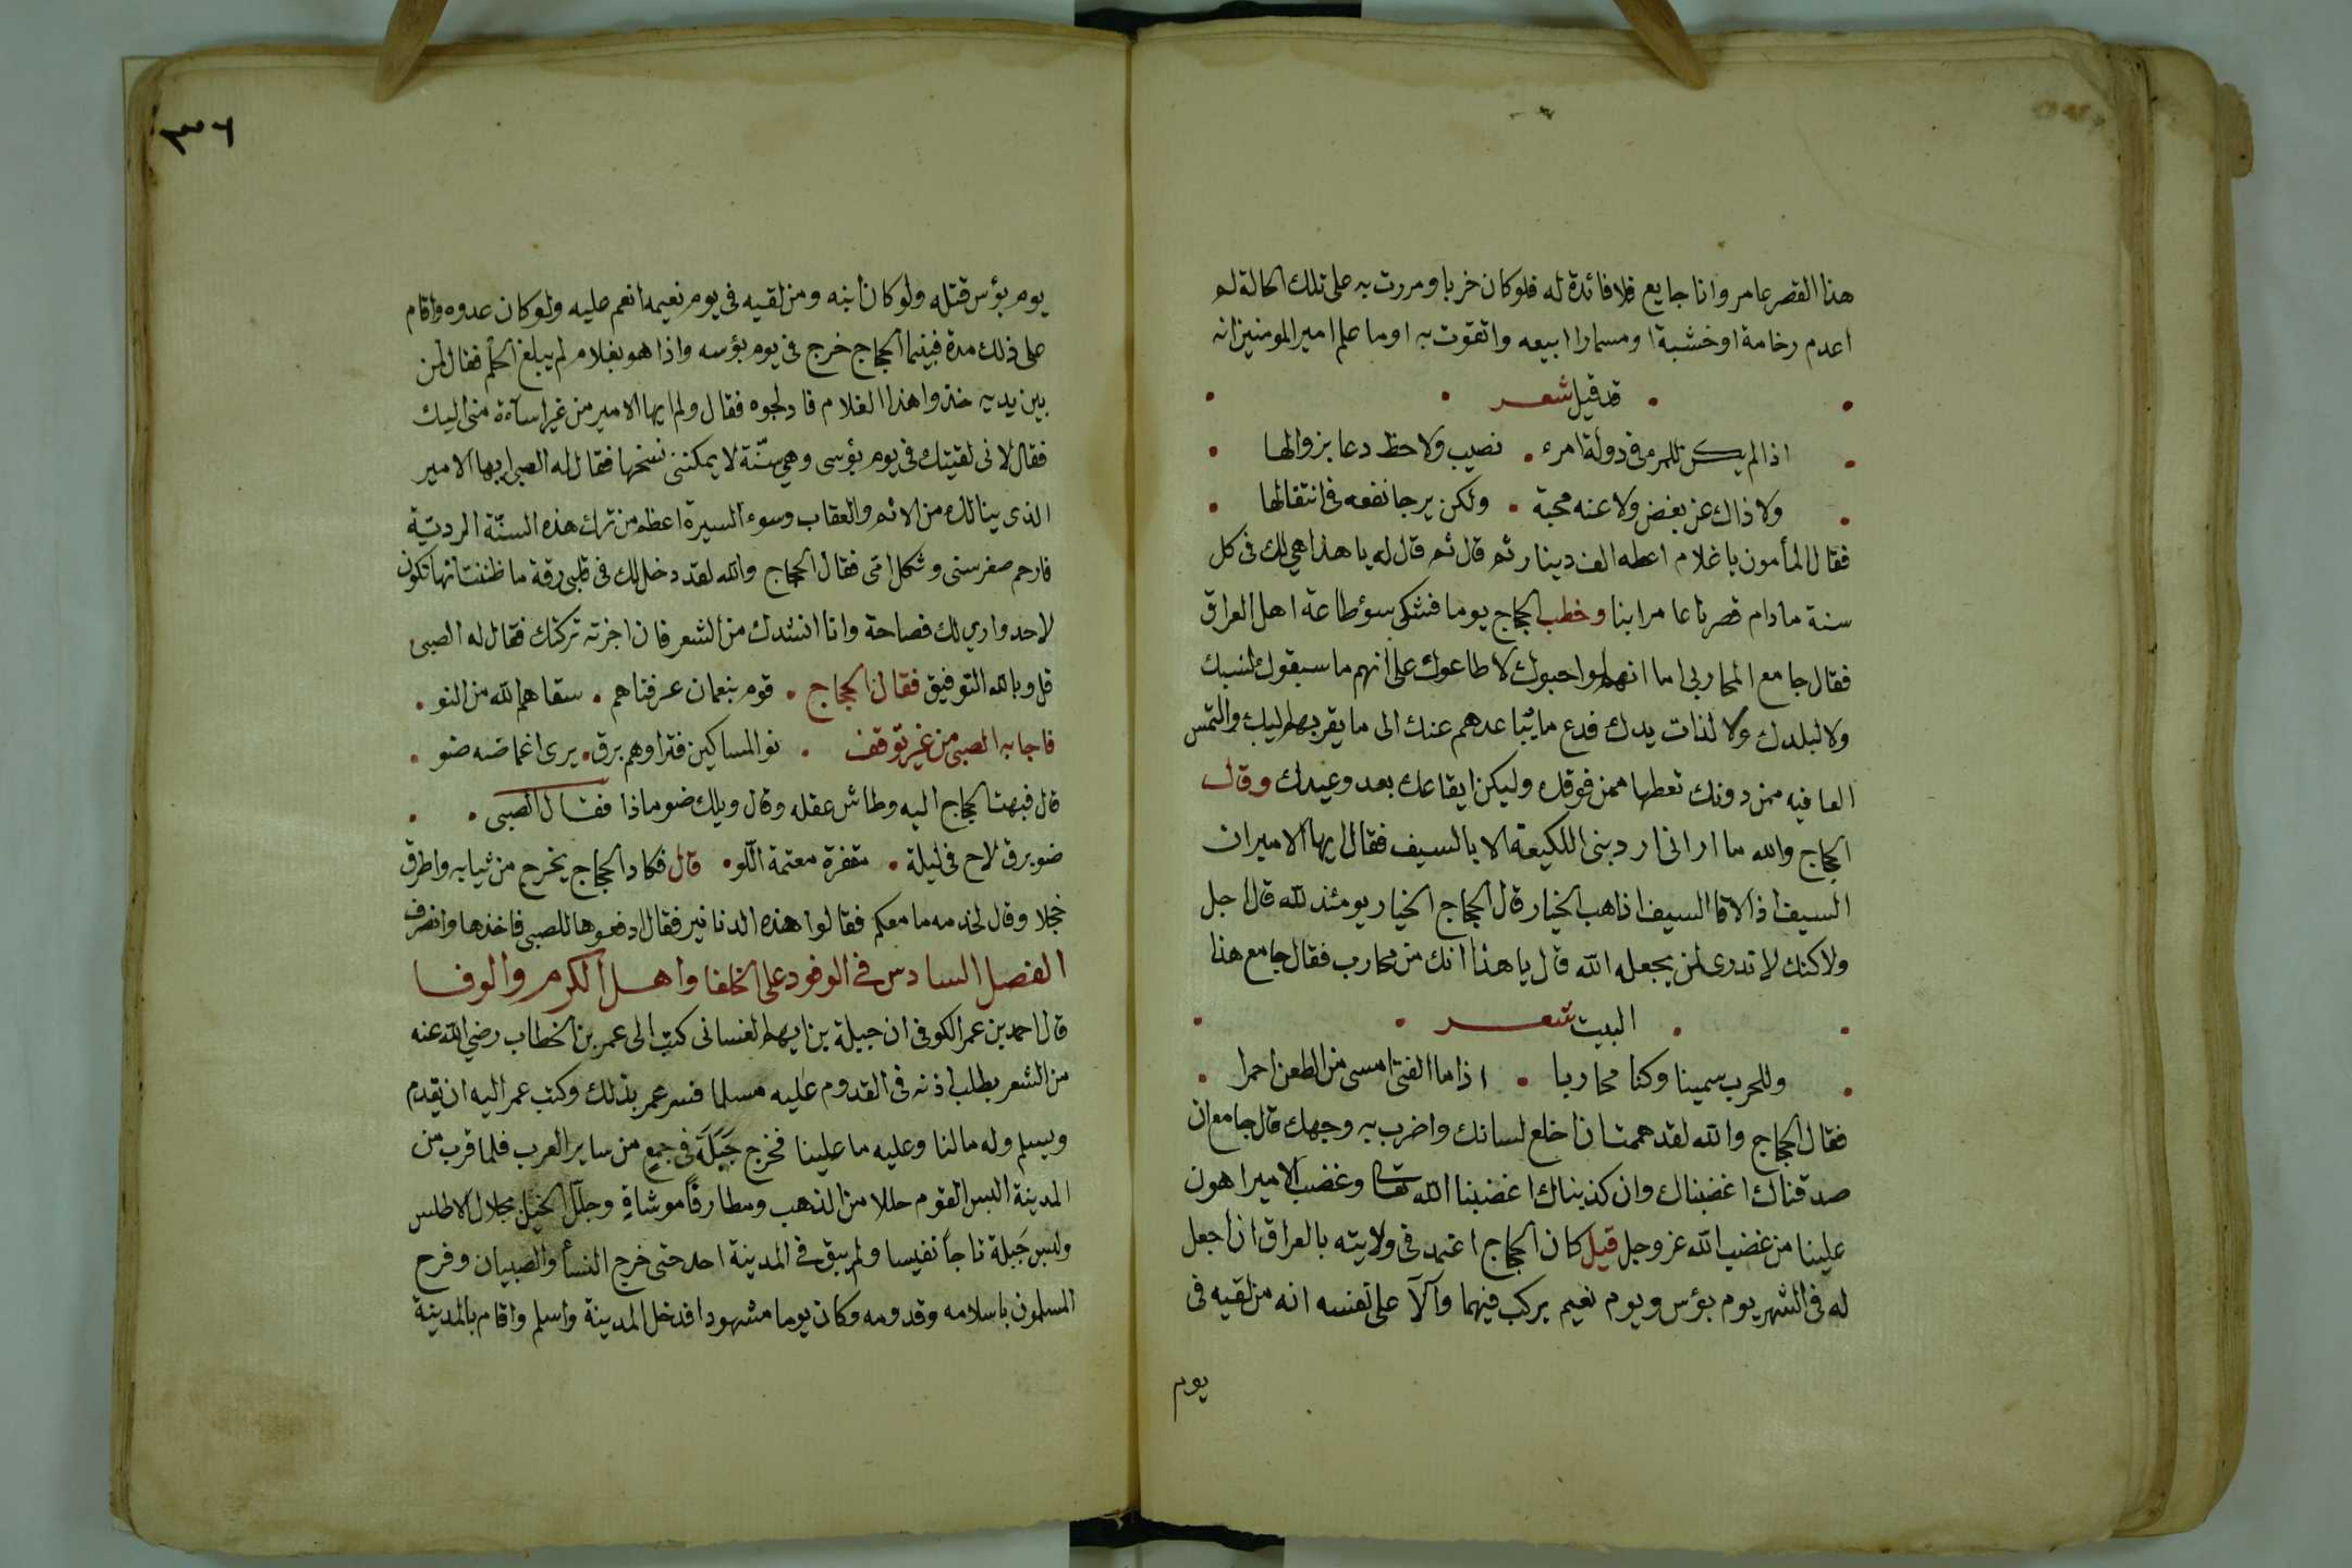 هذا القصر عامر وانا جايع فلا فائدة له فلو كان خربا ومررت به على تلك الحالة لم
اعدم رخامة او خشبة او مسمارا ابيعه واتقوت به اوما علم امير المومنين انه
قد قيل شعر
اذا لم يكن للمرء فى دولة امرء نصيب ولا حظ دعا بزوالها
ولا ذاك عن بغض ولا عنه محبة ولكن يرجا نفعه فى انتقالها
فقال المأمون يا غلام اعطه الف دينار ثم قال ثم قال له يا هذا هي لك فى كل
سنة ما دام قصرنا عامرا بنا وخطب الحجاج يوما فشكى سؤ طاعة اهل العراق
فقال جامع المحاربى اما انهم لو احبوك لا طاعوك على انهم ما سبقوك لنسبك
ولا لبلدك ولا لذات يدك فدع ما يتباعدهم عنك الى ما يقربهم اليك والتمس
العافيه ممن دونك تعطها ممن فوقك وليكن ايقاعك بعد وعيدك وقال
الحجاج والله ما ارانى ارد بنى اللكيعة الا بالسيف فقال ايها الامير ان
السيف اذا لاقا السيف اذاهب الخيار قال الحجاج الخيار يومئذ لله قال اجل
ولاكنك لا تدرى لمن يجعله الله قال يا هذا انك من محارب فقال جامع هذا
البيت شعر
وللحرب سمينا وكنا محاربا اذا ما الفتى امسى من الطعن احمرا
فقال الحجاج والله لقد هممت ان اخلع لسانك واضرب به وجهك قال جامع ان
صدقناك اغضبناك وان كذبناك اغضبنا الله تعالى وغضب الامير اهون
علينا من غضب الله عز وجل قيل كان الحجاج اعتمد فى ولايته بالعراق ان اجعل
له فى الشهر يوم بؤس ويوم نعيم يركب فيهما وآلآ على نفسه انه من لقيه فى
يوم
٣٣٦
يوم بؤس قتله ولو كان ابنه ومن لقيه فى يوم نعيمه انعم عليه ولو كان عدوه واقام
على ذلك مدة فبينما الحجاج خرج فى يوم بؤسه واذا هو بغلام لم يبلغ الحلم فقال لمن
بين يديه خذوا هذا الغلام فادلجوه فقال ولم ايها الامير من غير اساءة منى اليك
فقال لانى لقيتك فى يوم بؤسى وهي سنّة لا يمكننى نسخها فقال له الصبى ايها الامير
الذى ينالك من الاثم والعقاب وسوء السيرة اعظم من ترك هذه السنّة الرديّة
فارحم صغر سنى وثكل امّى فقال الحجاج والله لقد دخل لك فى قلبى رقة ما ظننت انها تكون
لاحد وارى لك فصاحة وانا انشدك من الشعر فان اجزته تركتك فقال له الصبى
قل وبالله التوفيق فقال الحجاج قوم بنعمان عرفناهم سقاهم الله من النو
فاجابه الصبى من غير توقف نو المساكين فتراوهم برق يرى اغماضه ضو
قال فبهت الحجاج اليه وطاش عقله وقال ويلك ضو ماذا فقال الصبى
ضو برق لاح فى ليلة مقفرة معتمة اللّو قال فكاد الحجاج يخرج من ثيابه واطرق
خجلا وقال لخدمه ما معكم فقالوا هذه الدنانير فقال ادفعوها للصبى فاخذها وانصرف
الفصل السادس فى الوفود على الخلفا واهل الكرم والوفا
قال احمد بن عمر الكوفى ان جبلة بن ايهم الغسانى كتب الى عمر بن الخطاب رضي الله عنه
من الشعر يطلب اذنه فى القدوم عليه مسلما فسر عمر بذلك وكتب عمر اليه ان يقدم
ويسلم وله ما لنا وعليه ما علينا فخرج جَبَلَة فى جمع من ساير العرب فلما قرب من
المدينة البس القوم حللا من الذهب ومطارقًا موشاةٍ وجلّل الخيل بجلال الاطلس
ولبس جَبلة تاجاً نفيسا ولم يبق فى المدينة احد حتى خرج النسأ والصبيان وفرح
المسلمون باسلامه وقدومه وكان يوما مشهودا فدخل المدينة واسلم واقام بالمدينة